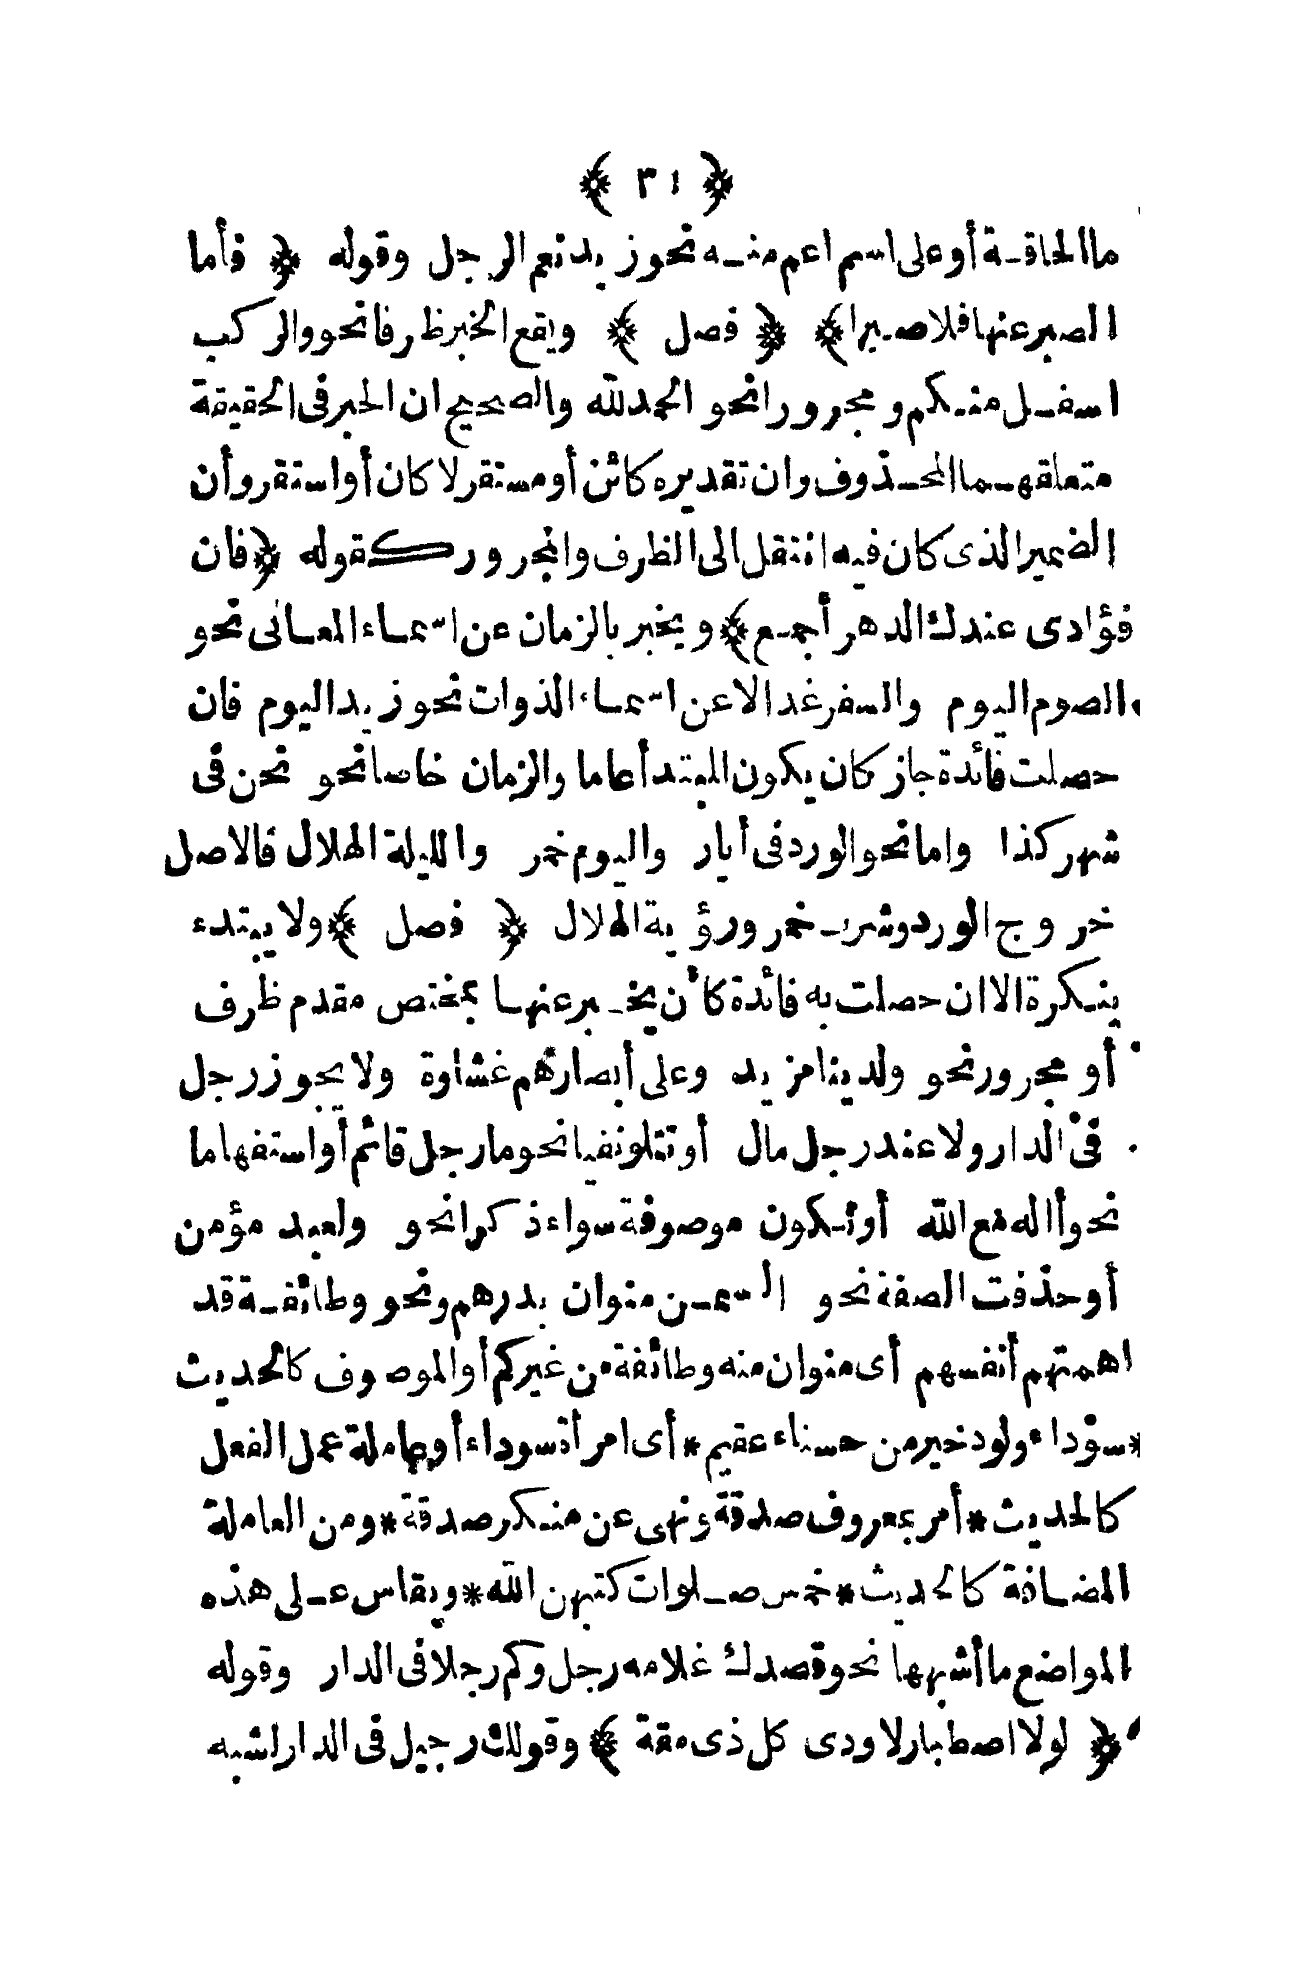 ﴿ ٣١ ﴾
ما الحاقة أو على اسم اعم منه نحو زيد نعم الرجل وقوله ﴿ فأما
الصبر عنها فلا صبرا ﴾ ﴿ فصل ﴾ ويقع الخبر ظرفا نحو والركب
اسفل منكم ومجرورا نحو الحمد لله والصحيح ان الخبر فى الحقيقة
متعلقهما المحذوف وان تقديره كائن أو مستقر لا كان أو استقر وأن
الضمير الذى كان فيه انتقل الى الظرف والمجرور كقوله ﴿ فان
فؤادى عندك الدهر أجمع ﴾ ويخبر بالزمان عن اسماء المعانى نحو
الصوم اليوم والسفر غدا لا عن اسماء الذوات نحو زيد اليوم فان
حصلت فائدة جاز كان يكون المبتدأ عاما والزمان خاصا نحو نحن فى
شهر كذا واما نحو الورد فى أيار واليوم خمر والليلة الهلال فالاصل
خروج الورد وشرب خمر ورؤية الهلال ﴿ فصل ﴾ ولا يبتدء
بنكرة الا ان حصلت به فائدة كأن يخبر عنها بمختص مقدم ظرف
أو مجرور نحو ولدينا مزيد وعلى أبصارهم غشاوة ولا يجوز رجل
فى الدار ولا عند رجل مال أو تتلو نفيا نحو ما رجل قائم أو استفهاما
نحو أاله مع الله أو تكون موصوفة سواء ذكرا نحو ولعبد مؤمن
أو حذفت الصفة نحو السمن منوان بدرهم ونحو وطائفة قد
اهمتهم أنفسهم أى منوان منه وطائفة من غيركم أو الموصوف كالحديث
*سوداء ولود خير من حسناء عقيم* أى امرأة سوداء أو عاملة عمل الفعل
كالحديث * أمر بمعروف صدقة ونهى عن منكر صدقة * ومن العاملة
المضافة كالحديث * خمس صلوات كتبهن الله * ويقاس على هذه
المواضع ما أشبهها نحو قصدك غلامه رجل وكم رجلا فى الدار وقوله
﴿ لولا اصطبار لاودى كل ذى مقة ﴾ وقولك رجيل فى الدار لشبه